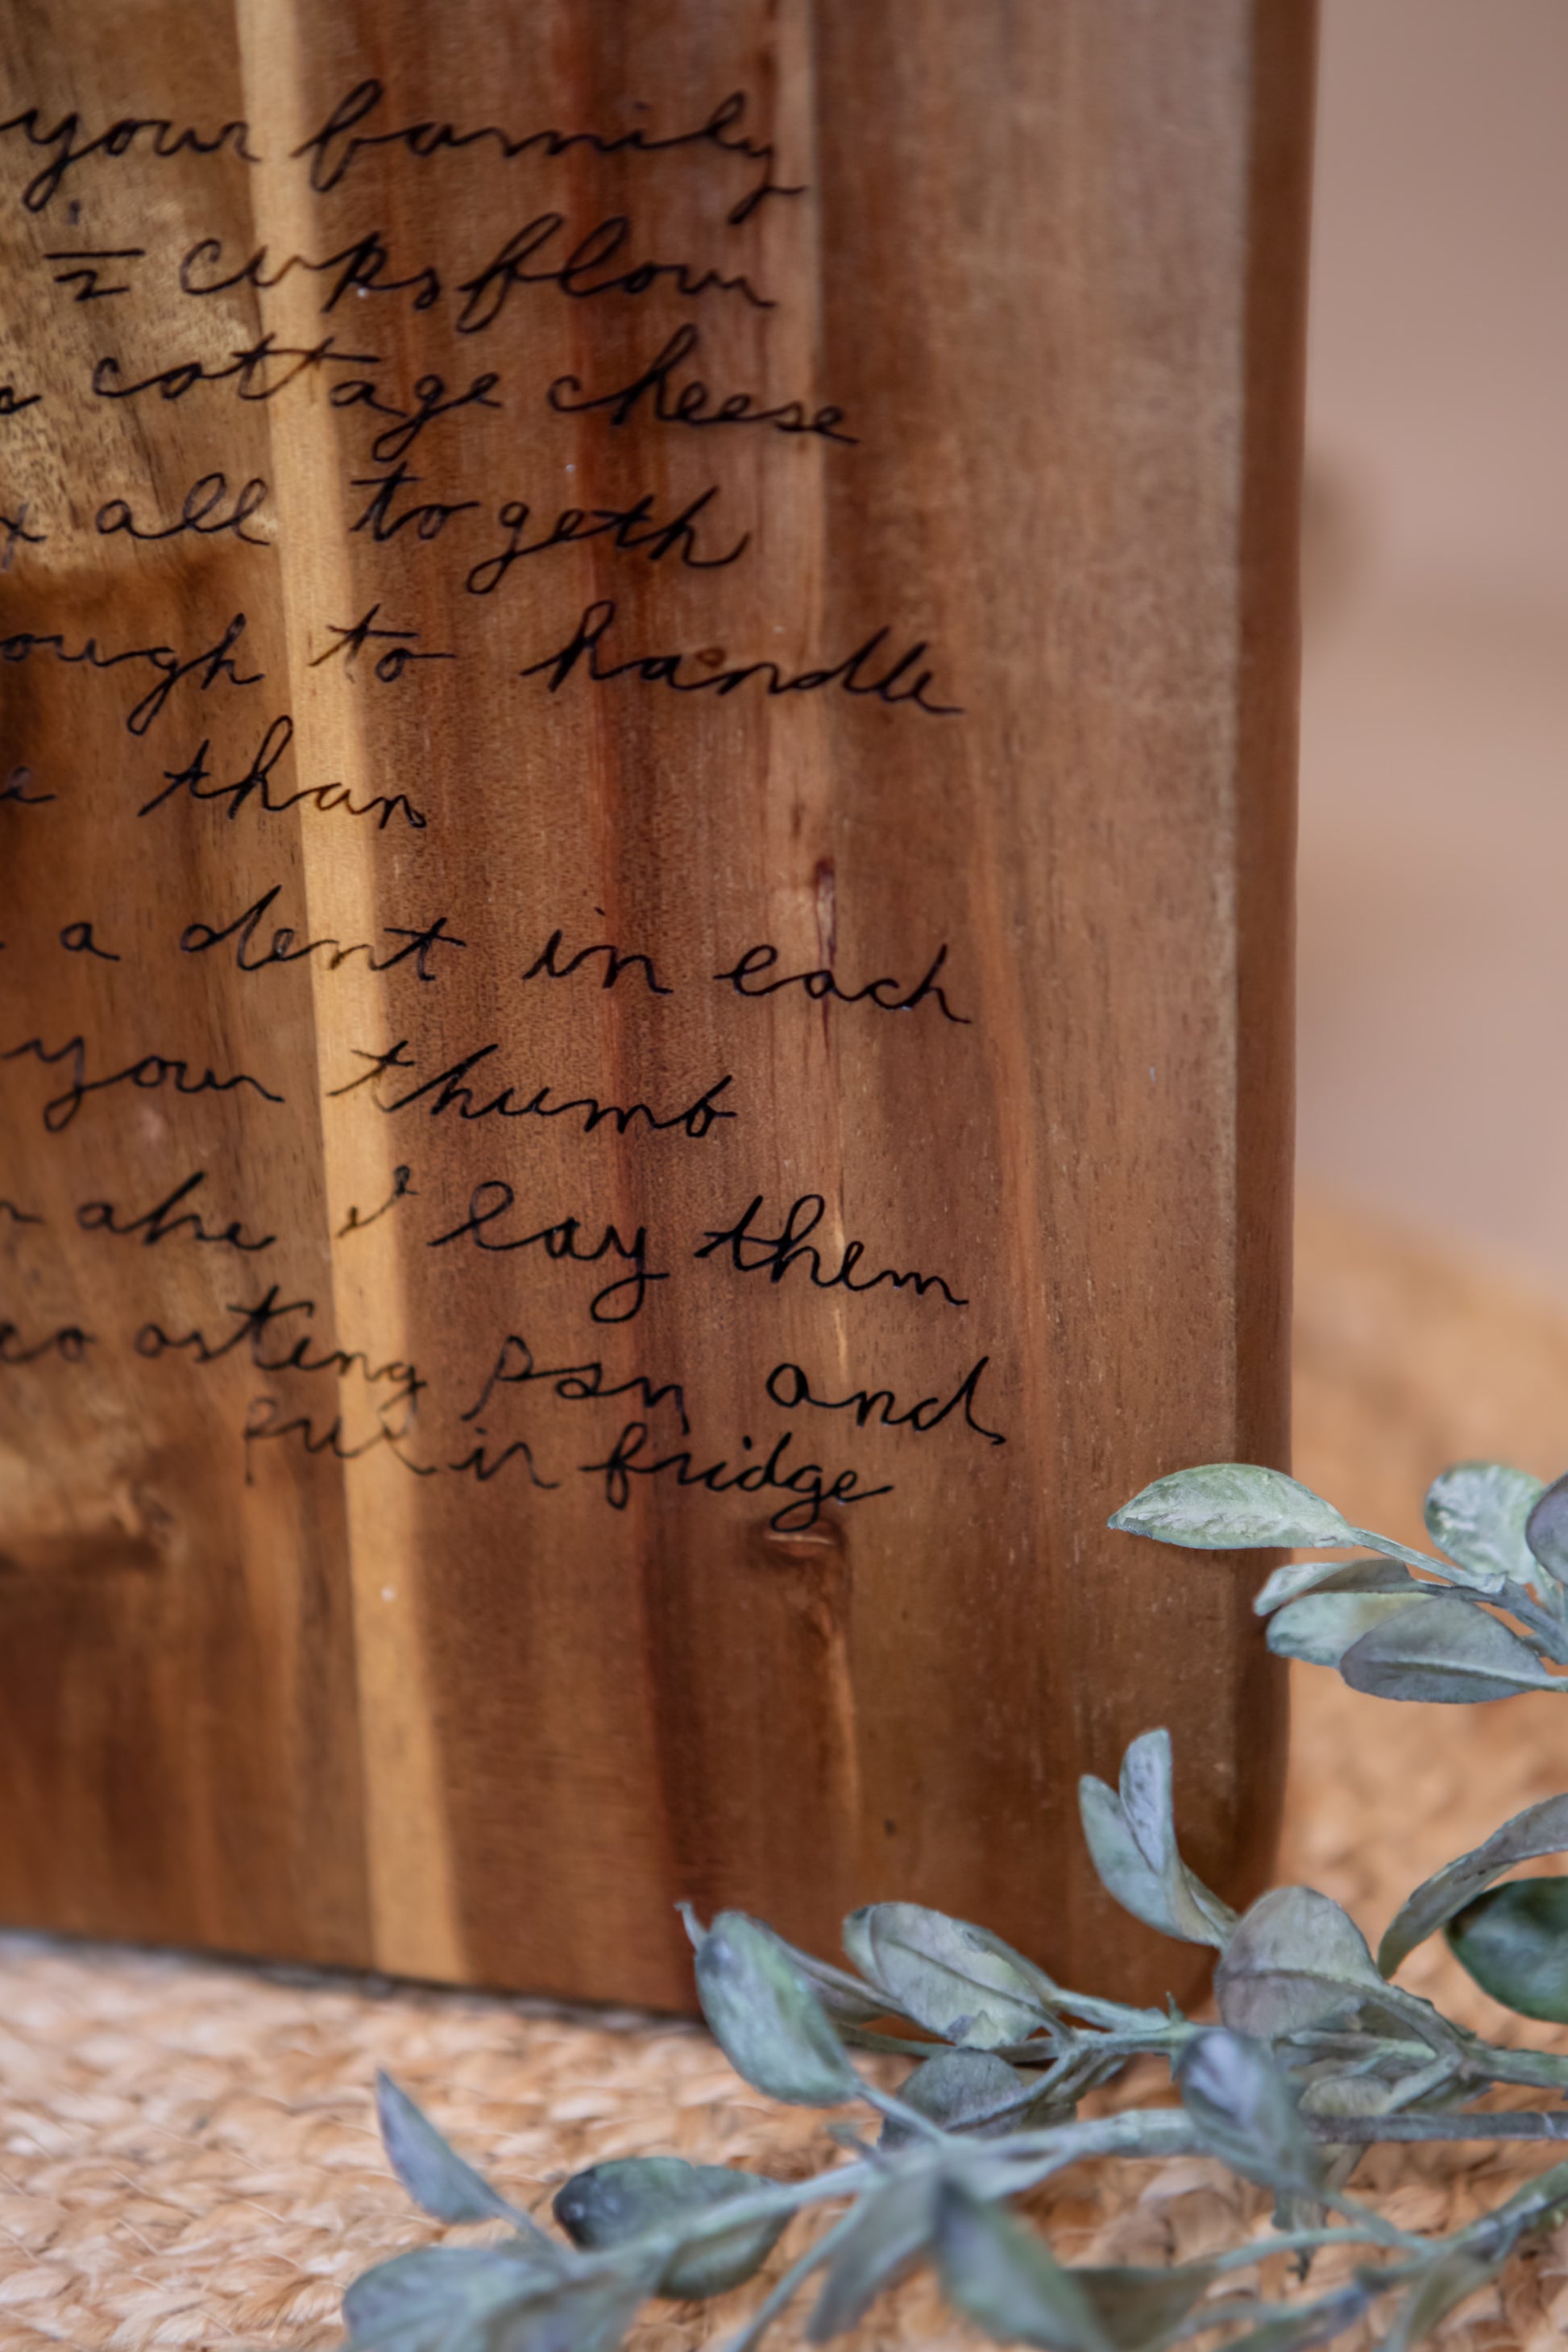 your family
1/2 cups flour
cottage cheese
all togeth
to handle
than
a dent in each
your thumb
I lay them
pan and
put in fridge